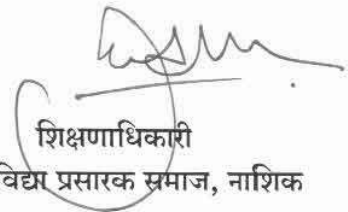 शिक्षणाधिकारी
विद्या प्रसारक समाज, नाशिक